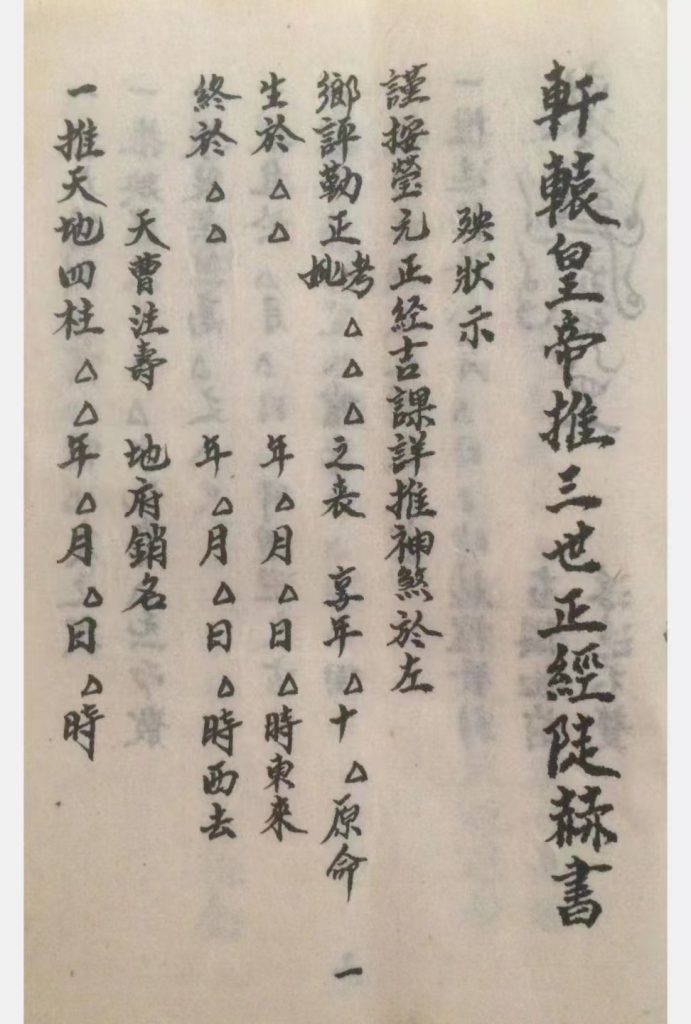 軒轅皇帝推三世正經陡赫書
殃狀示
謹按瑩元正経吉課詳推神煞於左
鄉評勒正考妣△△△之喪 享年△十△原命
生於△△ 年△月△日△時東來
終於△△ 年△月△日△時西去
天曹注壽 地府銷名
一推天地四柱△△年△月△日△時
一